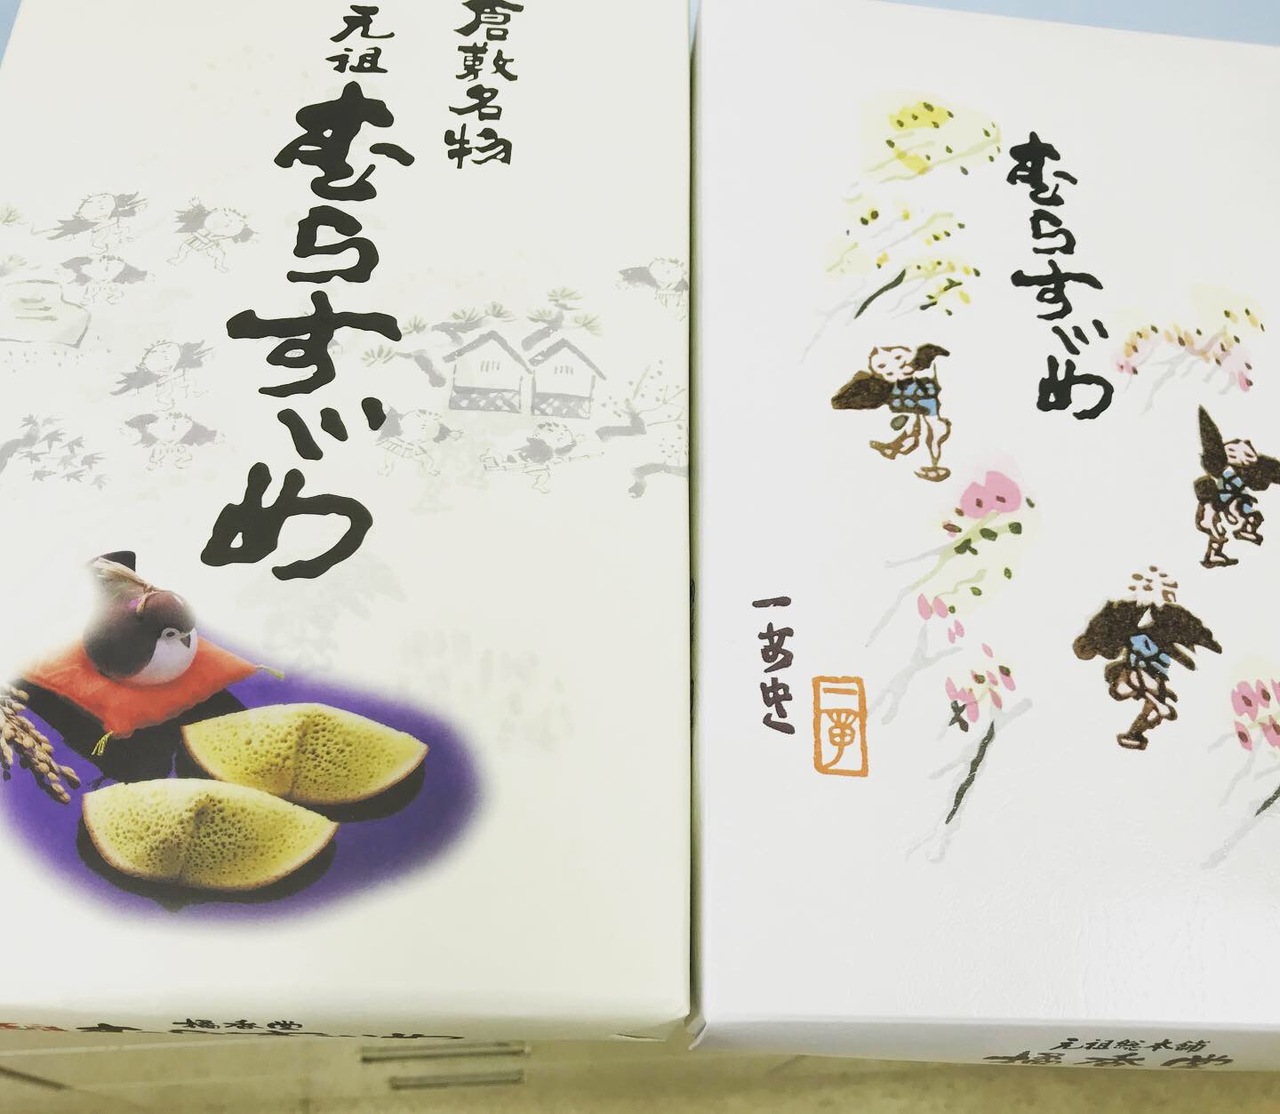 倉敷名物
元祖
むらすゞめ
橘香堂
むらすゞめ
元祖総本舗
橘香堂